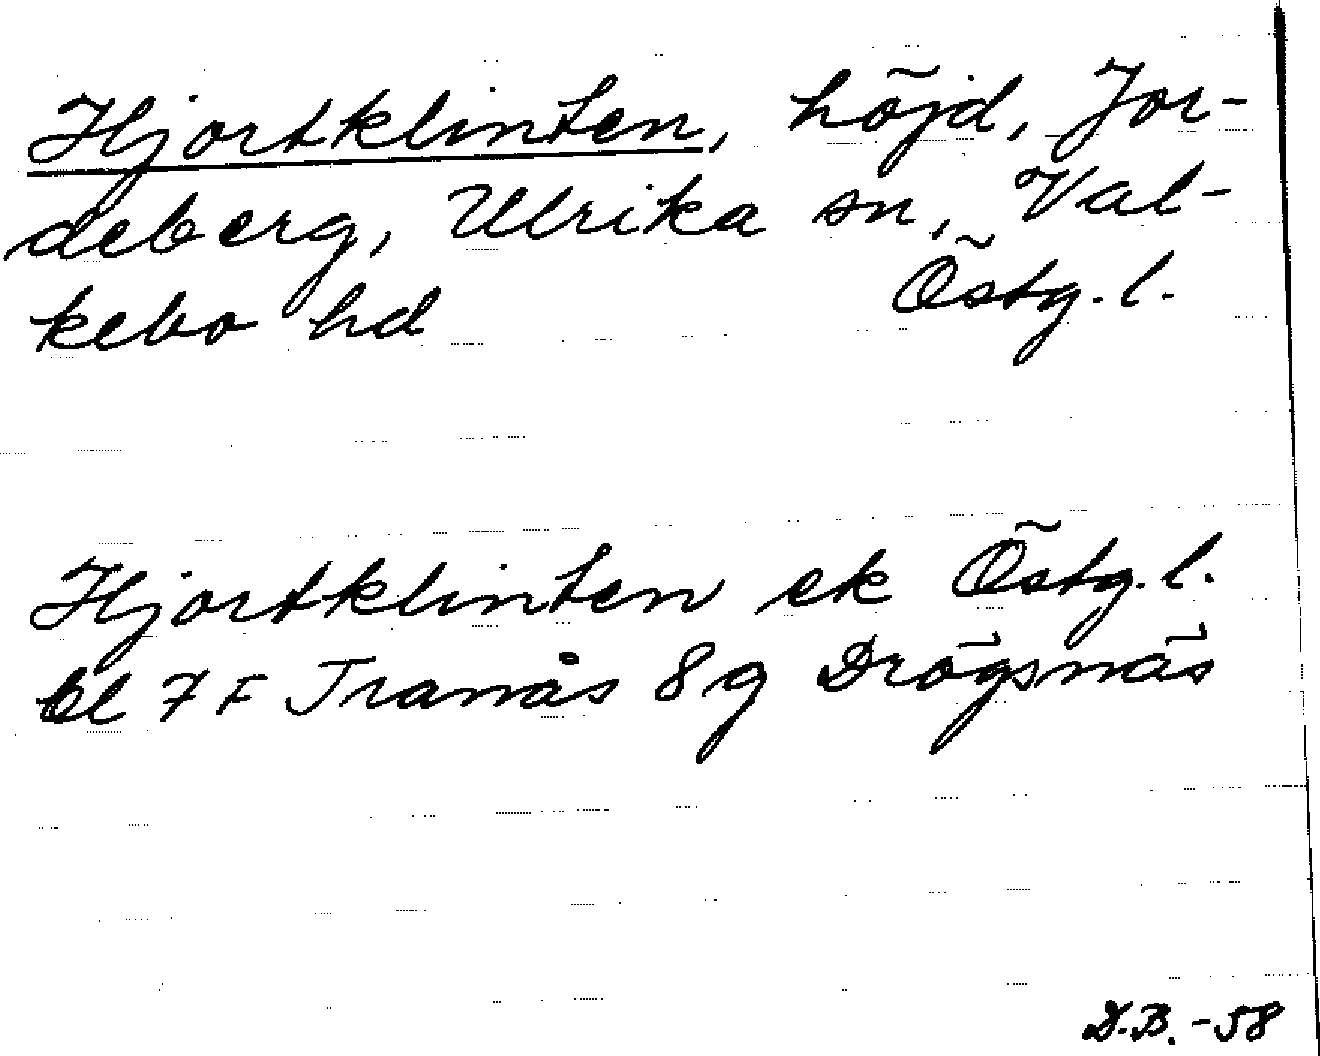 Hjortklinten, höjd, Jor-
deberg, Ulrika sn, Val-
kebo hd Östg. l.
Hjortklinten ek Östg. l.
bl 7 F Tranås 8 g Drögsnäs
D.B. -58